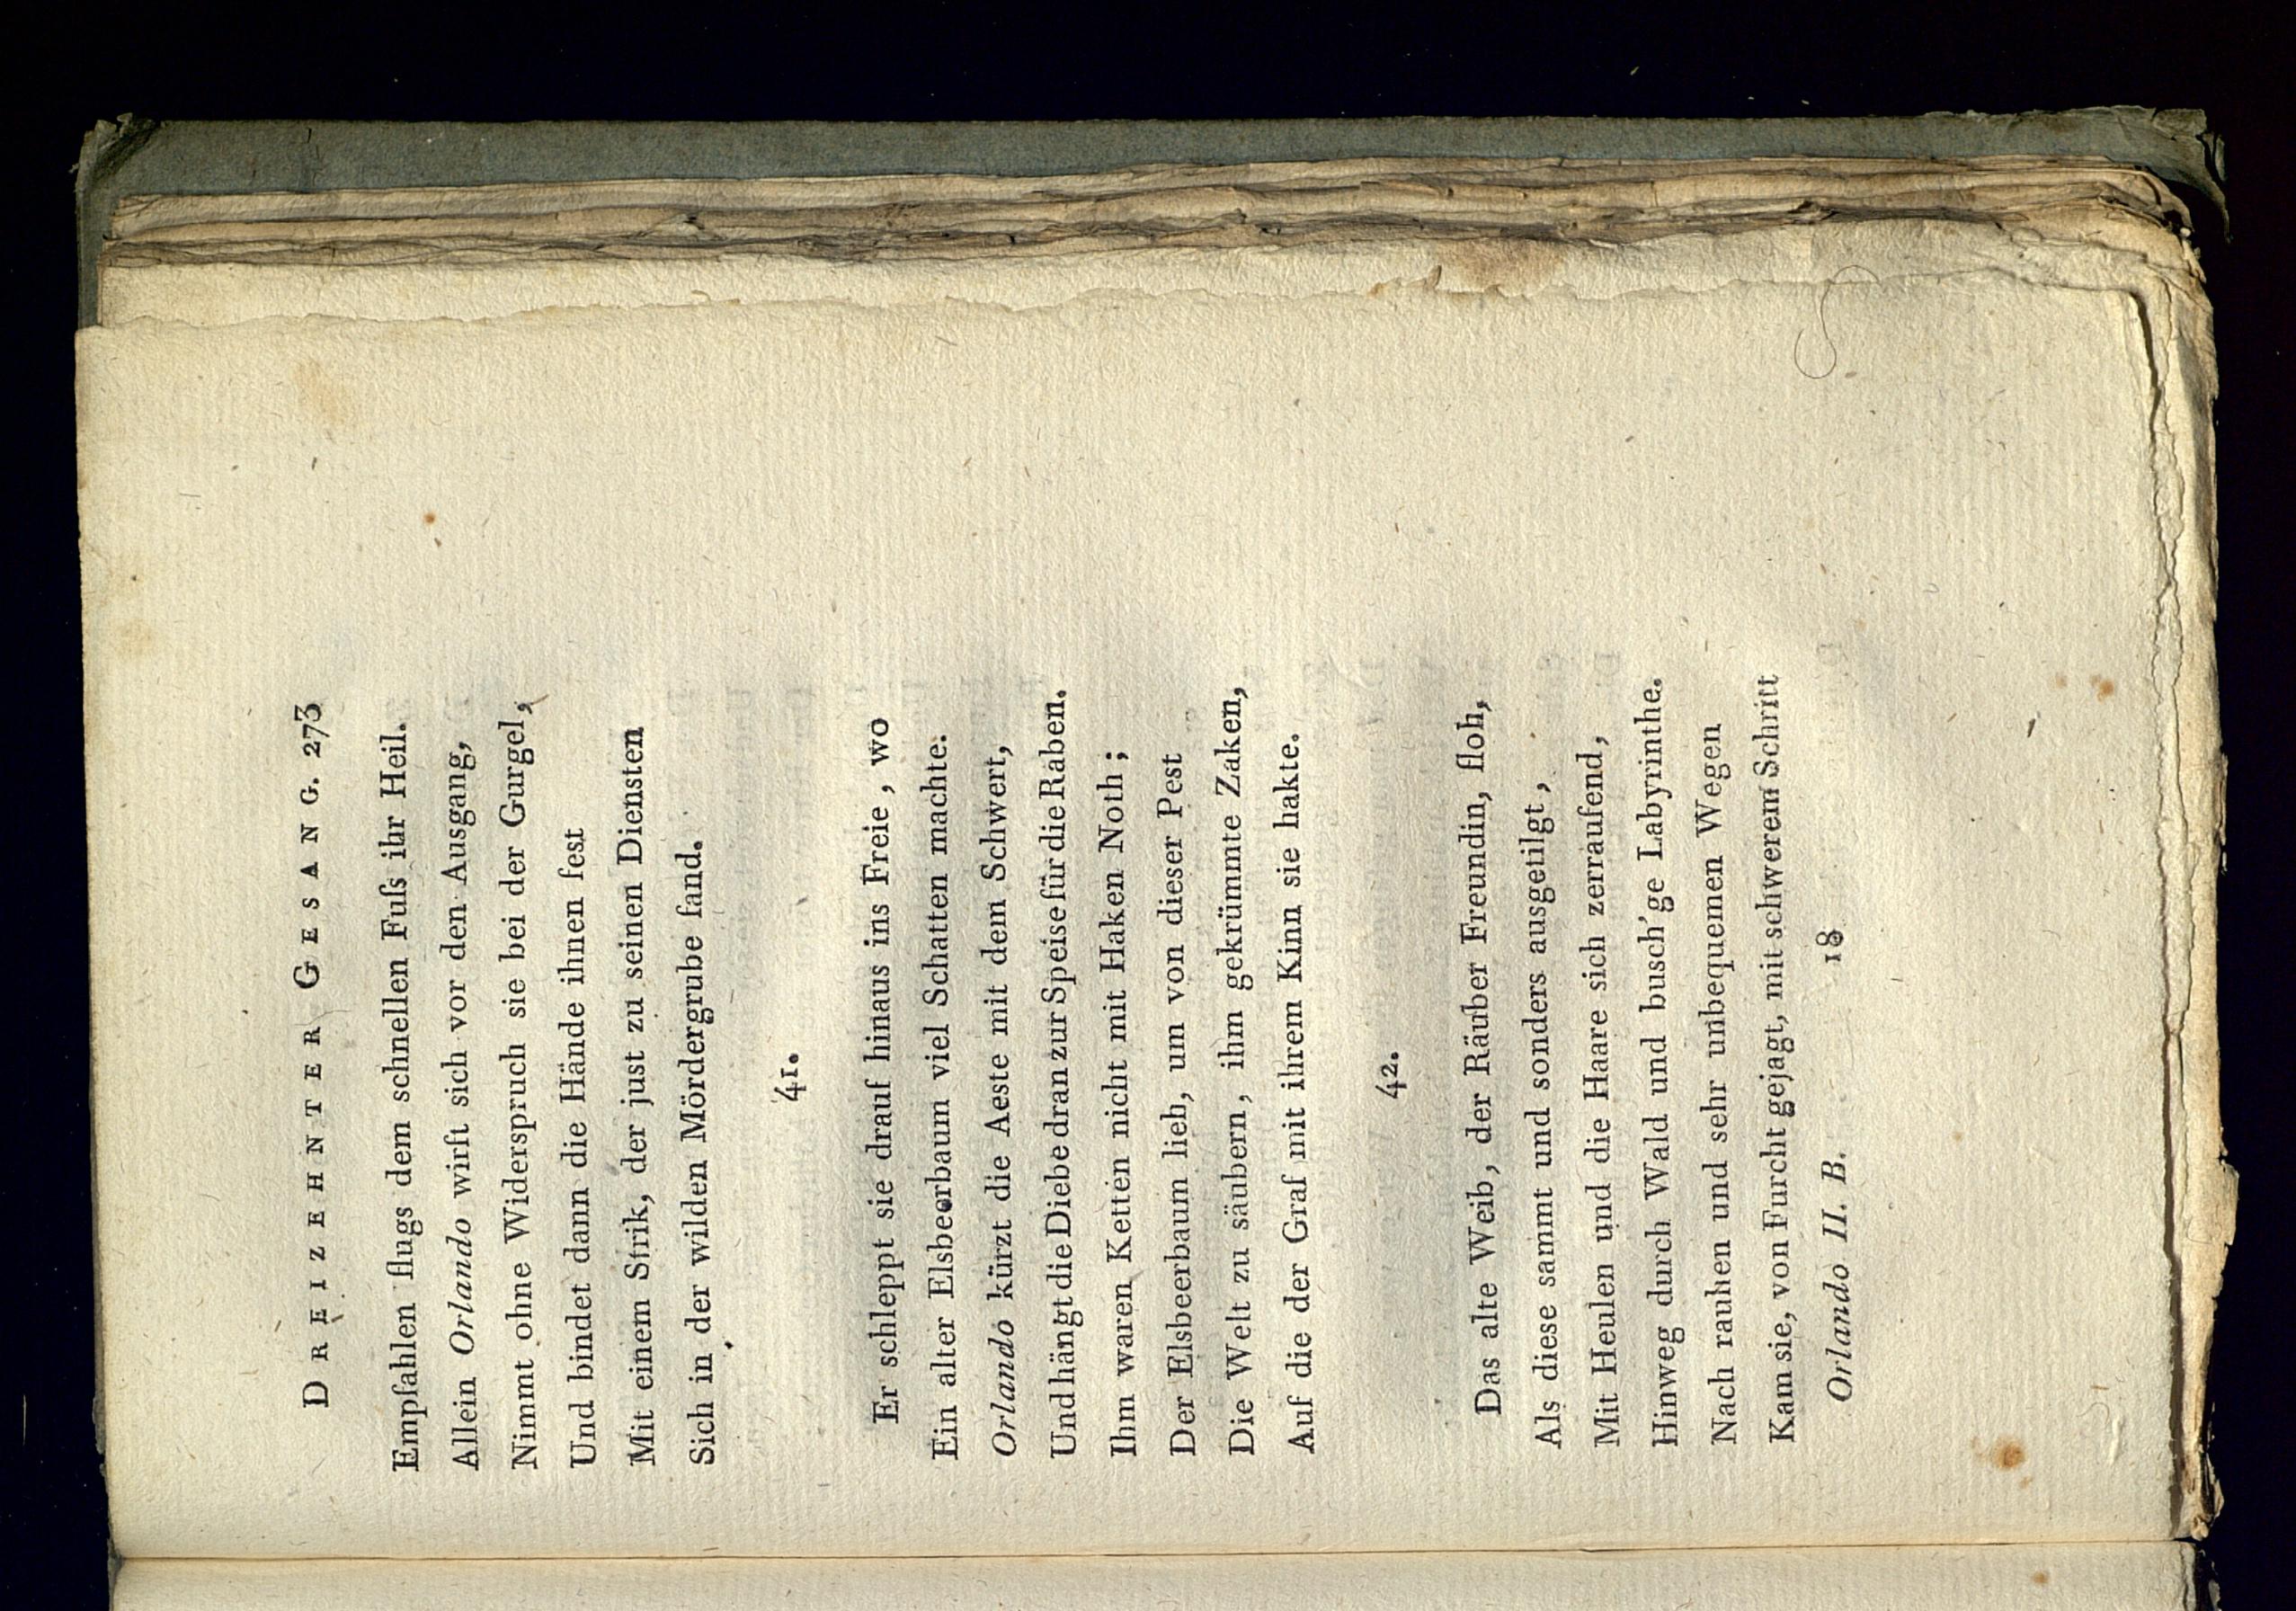 DREIZEHNTER GESANG. 273
Empfahlen flugs dem schnellen Fuſs ihr Heil.
Allein Orlando wirft sich vor den Ausgang,
Nimmt ohne Widerspruch sie bei der Gurgel,
Und bindet dann die Hände ihnen fest
Mit einem Strik, der just zu seinen Diensten
Sich in der wilden Mördergrube fand.
41.
Er schleppt sie drauf hinaus ins Freie, wo
Ein alter Elsbeerbaum viel Schatten machte.
Orlando kürzt die Aeste mit dem Schwert,
Und hängt die Diebe dran zur Speise für die Raben.
Ihm waren Ketten nicht mit Haken Noth;
Der Elsbeerbaum lieh, um von dieser Pest
Die Welt zu säubern, ihm gekrümmte Zaken,
Auf die der Graf mit ihrem Kinn sie hakte.
42.
Das alte Weib, der Räuber Freundin, floh,
Als diese sammt und sonders ausgetilgt,
Mit Heulen und die Haare sich zerraufend,
Hinweg durch Wald und busch'ge Labyrinthe.
Nach rauhen und sehr unbequemen Wegen
Kam sie, von Furcht gejagt, mit schwerem Schritt
Orlando II. B. 18